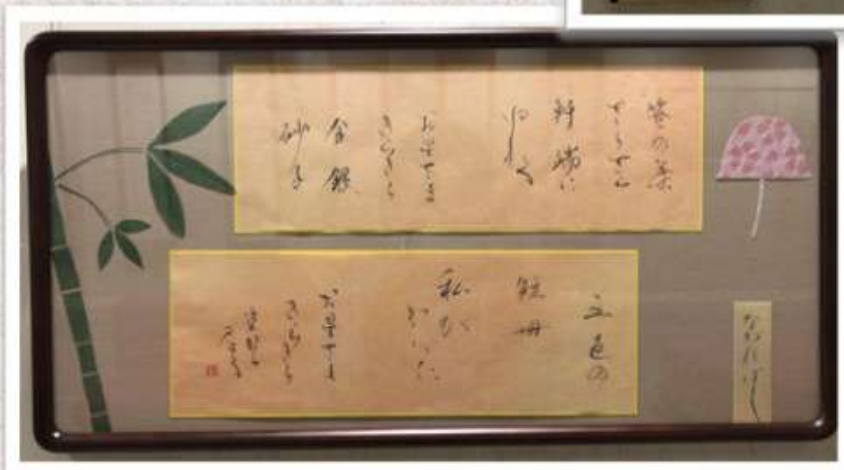 笹の葉
さらさら
軒端に
ゆれる
お星さま
きらきら
金銀
砂子
五色の
短冊
私が
かいた
お星さま
きらきら
空から